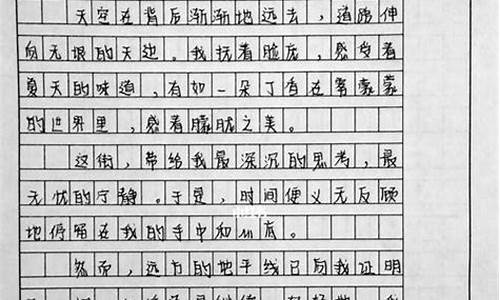 天空在背后渐渐地远去，道路伸
向无垠的天边。我抚着脸庞，感受着
夏天的味道，有如一朵丁香在雾蒙蒙
的世界里，感着朦胧之美。
这街，带给我最深沉的思考，最
无忧的宁静。于是，时间便义无反顾
地停留在我的手中和心底。
然而，远方的地平线已向我证明